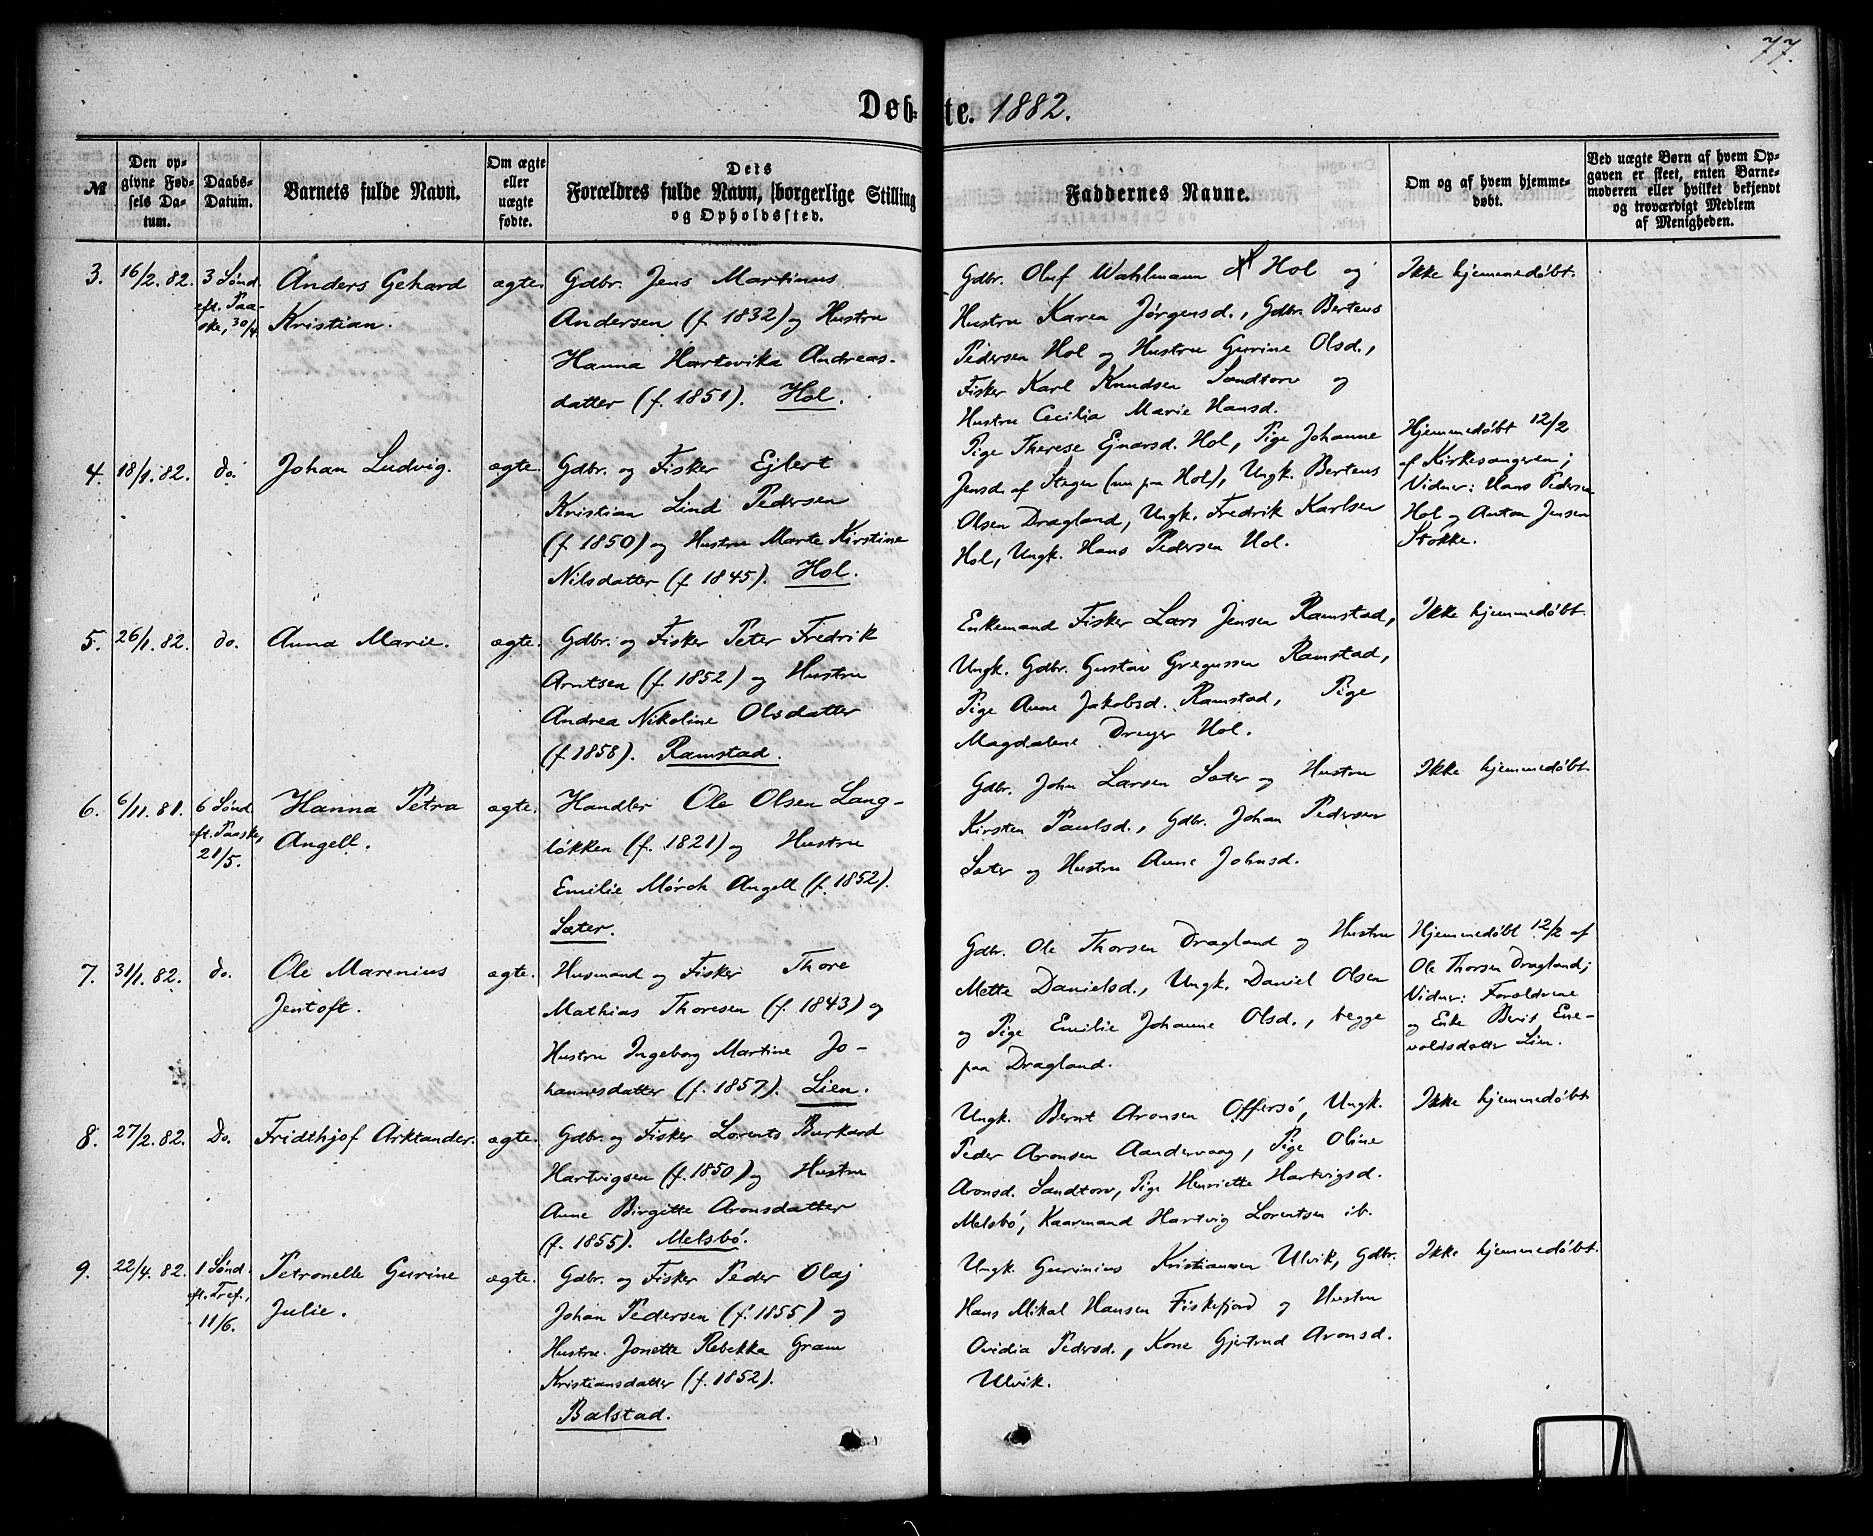 77.
Døb-te. 1882.
№
Den op-
givne Fød-
sels Da-
tum.
Daabs-
Datum.
Barnets fulde Navn.
Om ægte
eller
uægte
fødte.
Dets
Forældres fulde Navn, borgerlige Stilling
og Opholdssted.
Faddernes Navne.
Om og af hvem hjemme-
døbt.
Ved uægte Børn af hvem Op-
gaven er skeet, enten Barne-
moderen eller hvilket bekjendt
og troværdigt Medlem
af Menigheden.
3.
16/2. 82.
3 Sønd.
eft. Paa-
ske, 30/4.
Anders Gehard
Kristian.
ægte.
Gdbr. Jens Martinus
Andersen (f. 1832) og Hustru
Hanna Hartevika Andreas-
datter (f. 1851). Hol.
Gdbr. Oluf Wahlmann Hol og
Hustru Karen Jørgensd., Gdbr. Bertens
Pedersen Hol og Hustru Gurine Olsd.,
Fisker Karl Knudsen Sandtorv og
Hustru Cecilia Marie Hansd.
Ikke hjemmedøbt.
4.
18/1. 82.
do.
Johan Ludvig.
ægte.
Gdbr. og Fisker Ejlert
Kristian Lind Pedersen
(f. 1850) og Hustru Marte Kirstine
Nilsdatter (f. 1845). Hol.
Pige Therese Ejnarsd. Hol, Pige Johanne
Jensd. af Stegen (nu paa Hol), Ungk. Bertens
Olsen Dragland, Ungk. Fredrik Karlsen
Hol, Ungk. Hans Pedersen Hol.
Hjemmedøbt 12/2
af Kirkesangeren;
Vidner: Hans Pedersen
Hol og Anton Jensen
Stokke.
5.
26/1. 82.
do.
Anna Marie.
ægte.
Gdbr. og Fisker Peter Fredrik
Arntsen (f. 1852) og Hustru
Andrea Nikoline Olsdatter
(f. 1858). Ramstad.
Enkemand Fisker Lars Jensen Ramstad,
Ungk. Gdbr. Gustav Gregussen Ramstad,
Pige Anne Jakobsd. Ramstad, Pige
Magdalene Dreyer Hol.
Ikke hjemmedøbt.
6.
6/11. 81.
6 Sønd.
eft. Paaske,
21/5.
Hanna Petra
Angell.
ægte.
Handler Ole Olsen Lang-
løkken (f. 1821) og Hustru
Emilie Mørch Angell (f. 1852).
Sæter.
Gdbr. John Larsen Sæter og Hustru
Kirsten Paulsd., Gdbr. Johan Pedersen
Sæter og Hustru Anne Johnsd.
Ikke hjemmedøbt.
7.
31/1. 82.
do.
Ole Marenius
Jentoft.
ægte.
Husmand og Fisker Thore
Mathias Thoresen (f. 1843) og
Hustru Ingeborg Martine Jo-
hannesdatter (f. 1857). Lien.
Gdbr. Ole Thorsen Dragland og Hustru
Mette Danielsd., Ungk. Daniel Olsen
og Pige Emilie Johanne Olsd., begge
paa Dragland.
Hjemmedøbt 12/2 af
Ole Thorsen Dragland;
Vidner: Forældrene
og Enke Berit Ene-
voldsdatter Lien.
8.
27/2. 82.
Do.
Fridthjof Arktander.
ægte.
Gdbr. og Fisker Lorents Burkard
Hartvigsen (f. 1850) og Hustru
Anne Birgitte Aronsdatter
(f. 1855). Melsbø.
Ungk. Bernt Aronsen Offersø, Ungk.
Peder Aronsen Aandervaag, Pige Oline
Aronsd. Sandtorv, Pige Henriette Hartvigsd.
Melsbø, Kaarmand Hartvig Lorentsen ib.
Ikke hjemmedøbt.
9.
22/4. 82.
1 Sønd.
eft. Tref.,
11/6.
Petronelle Gurine
Julie.
ægte.
Gdbr. og Fisker Peder Olaj
Johan Pedersen (f. 1855) og
Hustru Jonette Rebekka Gram
Kristiansdatter (f. 1852).
Balstad.
Ungk. Gurinius Kristiansen Ulvik, Gdbr.
Hans Mikal Hansen Fiskefjord og Hustru
Ovidia Pedersd., Kone Gjertrud Aronsd.
Ulvik.
Ikke hjemmedøbt.